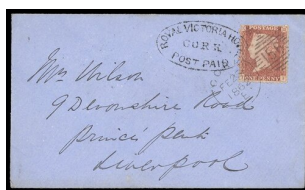 ROYAL VICTORIA HOTEL
CORK
POST PAID
POSTAGE
ONE PENNY
Mrs Wilson
9 Devonshire Road
Princes Park
Liverpool